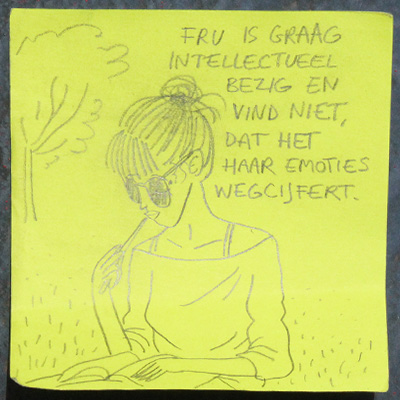 FRU IS GRAAG
INTELLECTUEEL
BEZIG EN
VIND NIET,
DAT HET
HAAR EMOTIES
WEGCIJFERT.